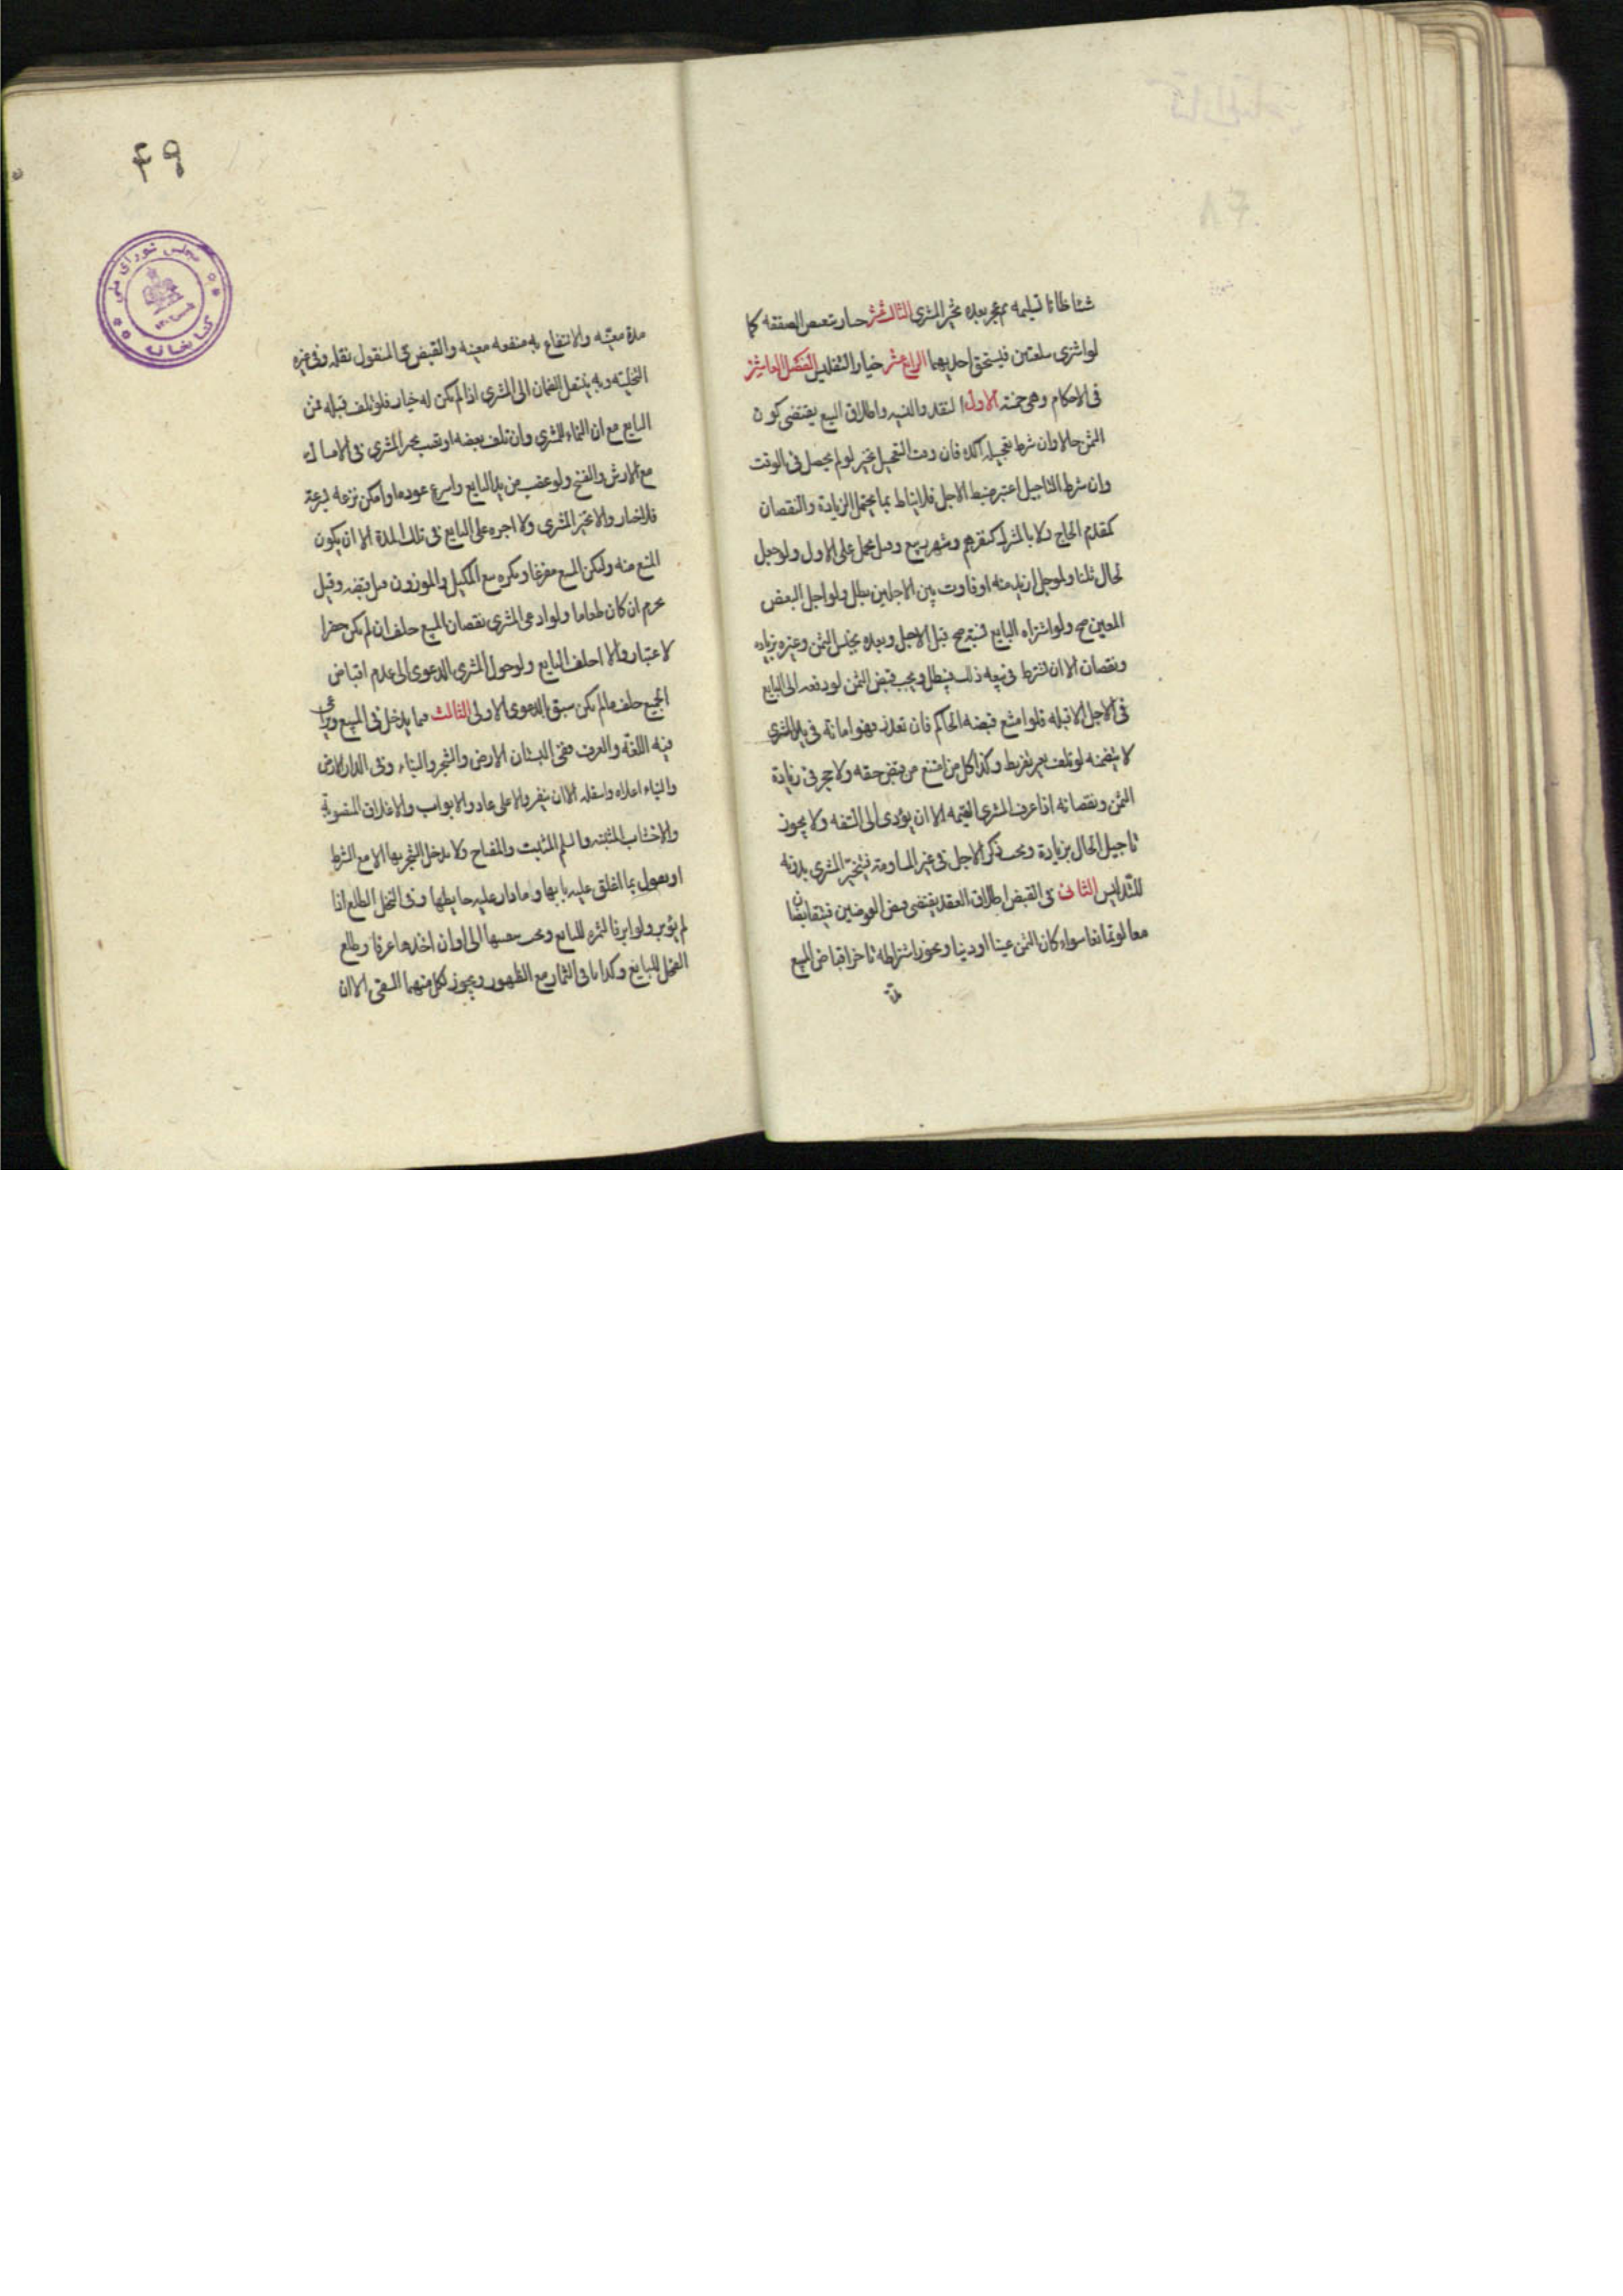 شيئا ظانا تسليمه ثم عجز بعده تخير المشتري الثالث عشر خيار تبعض الصفقه كما
لو اشترى سلعتين فيستحق احديهما الرابع عشر خيار التفليس الفصل العاشر
في الاحكام وهي خمسة الاول النقد والنسيه واطلاق البيع يقتضي كون
الثمن حالا وان شرط تعجيله اكده فان وقت التعجيل تخير لو لم يحصل في الوقت
وان شرط التاجيل اعتبر ضبط الاجل فلا يناط بما يحتمل الزيادة والنقصان
كمقدم الحاج ولا بالمشترك كنفرهم وشهر ربيع وقيل يحمل على الاول ولو جعل
لحال ثمنا ولموجل ازيد منه او فاوت بين الاجلين بطل ولو اجل البعض
المعين صح ولو اشتراه البايع نسية صح قبل الاجل وبعده بجنس الثمن وغيره بزيادة
ونقصان الا ان يشترط في بيعه ذلك فيبطل ويجب قبض الثمن لو دفعه الى البايع
في الاجل لا قبله فلو امتنع قبضه الحاكم فان تعذر فهو امانة في يد المشتري
لا يضمنه لو تلف بغير تفريط وكذا كل من امتنع من قبض حقه ولا حجر في زيادة
الثمن ونقصانه اذا عرف المشتري القيمه الا ان يؤدى الى السفه ولا يجوز
تاجيل الحال بزيادة ويجب ذكر الاجل في غير المساومة فيتخير المشتري بدونه
للتدليس الثاني في القبض اطلاق العقد يقتضي قبض العوضين فيتقابضان
معا لو تمانعا سواء كان الثمن عينا او دينا ويجوز اشتراطه تاخير اقباض المبيع
مدة
۴۹
مجلس شورای ملی
کتابخانه
مدة معينه والانتفاع به منفعه معينه والقبض في المنقول نقله وفي غيره
التخليته وبه ينتقل الضمان الى المشتري اذا لم يكن له خيار فلو تلف قبله فمن
البايع مع ان النماء للمشتري وان تلف بعضه او تعيب تخير المشتري في الامساك
مع الارش والفسخ ولو غصب من يد البايع واسرع عوده او امكن نزعه بسرعة
فلا خيار والا تخير المشتري ولا اجره على البايع في تلك المدة الا ان يكون
المنع منه وليكن المبيع مفرغا ويكره بيع المكيل والموزون قبل قبضه وقيل
يحرم ان كان طعاما ولو ادعى المشتري نقصان المبيع حلف ان لم يكن حضر
لاعتبار والا احلف البايع ولو حول المشتري الدعوى الى عدم اقباض
الجميع حلف مالم يكن سبق الدعوى الاولى الثالث فيما يدخل في المبيع ويراعى
فيه اللغة والعرف ففي البستان الارض والشجر والبناء وفي الدار الارض
والبناء اعلاه واسفله الا ان ينفرد الاعلى عادة والابواب والاغلاق المنصوبة
والاخشاب المثبته والسلم المثبت والمفتاح ولا يدخل الشجر بها الا مع الشرط
او يقول بما اغلق عليه بابها وما دار عليه حايطها وفي النخل الطلع اذا
لم يؤبر ولو ابر فالثمره للبايع ويجب تبقيتها الى اوان اخذها عرفا وطلع
الفحل للبايع وكذا باقي الثمار مع الظهور ويجوز لكل منهما السقي الا ان